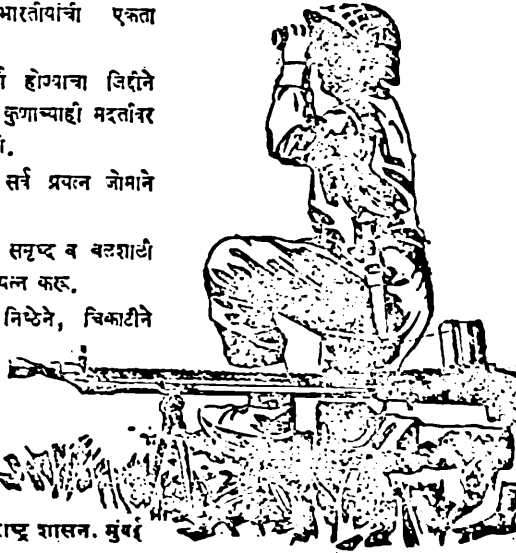 भारतीयांची एकता
होण्याचा जिद्दीने
कुणाच्याही मदतीवर
सर्व प्रयत्न जोमाने
समृध्द व बलशाली
यत्न करू.
निष्ठेने, चिकाटीने
राष्ट्र शासन. मुंबई